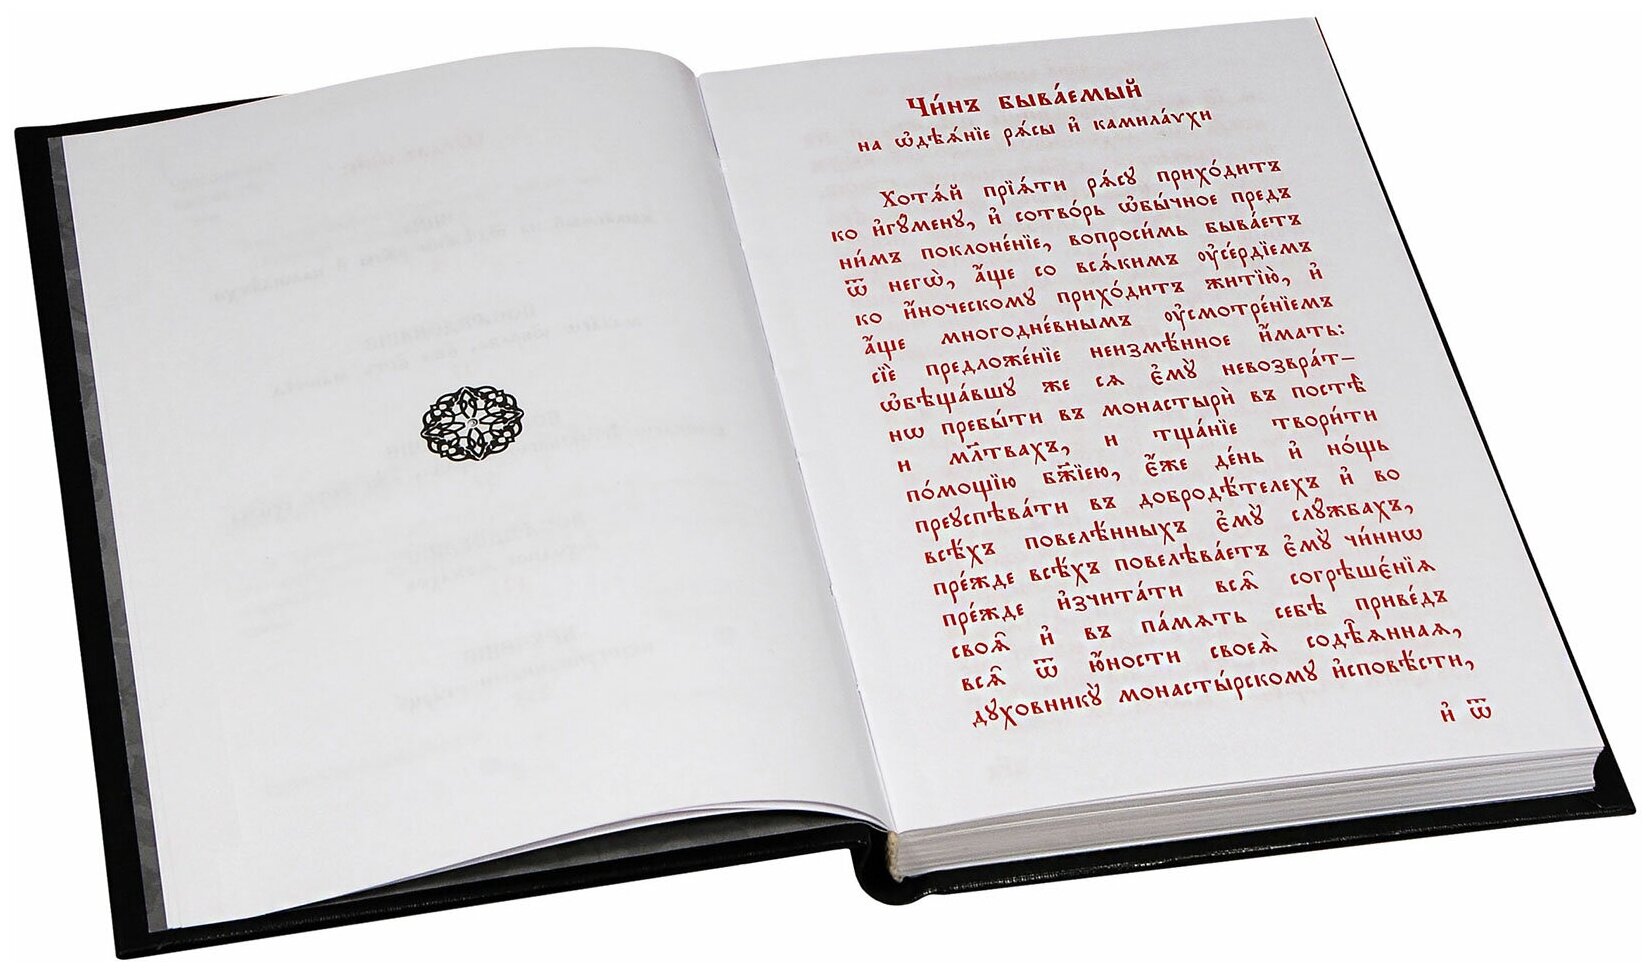 Чи́нъ быва́емый
на ѡ҆дѣѧ́нїе рѧ́сы и҆ камила́ѵхи
Хотѧ́й прїѧ́ти рѧ́сꙋ прихо́дитъ
ко и҆гꙋменꙋ, и҆ сотво́рь ѡ҆бы́чное предъ
ни́мъ поклоне́нїе, вопроси́мь быва́етъ
ѿ негѡ̀, а҆́ще со всѧ́кимъ оу҆се́рдїемъ
ко и҆́ноческомꙋ прихо́дитъ житїю̀, и҆
а҆́ще многодне́внымъ оу҆смотре́нїемъ
сїѐ предложе́нїе неизмѣ́нное и҆́мать:
ѡ҆бѣща́вшꙋ же сѧ є҆мꙋ̀ невозвра́т-
нѡ пребы́ти въ монастырѝ въ постѣ̀
и мл҃твахъ, и тща́нїе твори́ти
по́мощїю бж҃їею, є҆́же де́нь и҆ но́щь
преꙋспѣва́ти въ добродѣ́телехъ и҆ во
всѣ́хъ повелѣ́нныхъ є҆мꙋ̀ слꙋ́жбахъ,
пре́жде всѣ́хъ повелѣва́етъ є҆мꙋ̀ чи́ннѡ
пре́жде и҆зчита́ти всѧ̑ согрѣше́нїѧ
своѧ̑ и҆ въ па́мѧть себѣ̀ приве́дъ
всѧ̑ ѿ ю҆́ности своеѧ̀ содѣ̑ѧннаѧ,
дꙋховникꙋ̀ монасты́рскомꙋ и҆сповѣ́сти,
и҆ ѿ